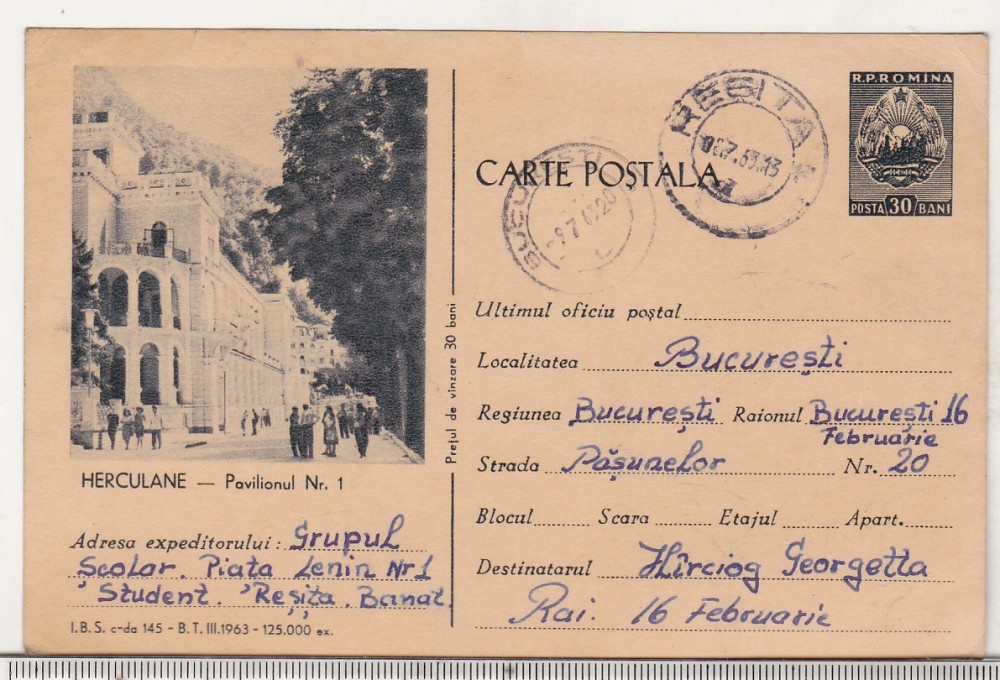 R.P.ROMINA
POSTA 30 BANI
RESITA
BUCURESTI
CARTE POȘTALA
Prețul de vînzare 30 bani
HERCULANE — Pavilionul Nr. 1
Ultimul oficiu poștal
Localitatea București
Regiunea București Raionul București 16
Februarie
Strada Pășunelor Nr. 20
Blocul Scara Etajul Apart.
Destinatarul Hîrciog Georgetta
Rai. 16 Februarie
Adresa expeditorului: Grupul
Școlar. Piața Lenin Nr 1
Student. Reșița. Banat.
I.B.S. c-da 145 - B. T. III.1963 - 125.000 ex.